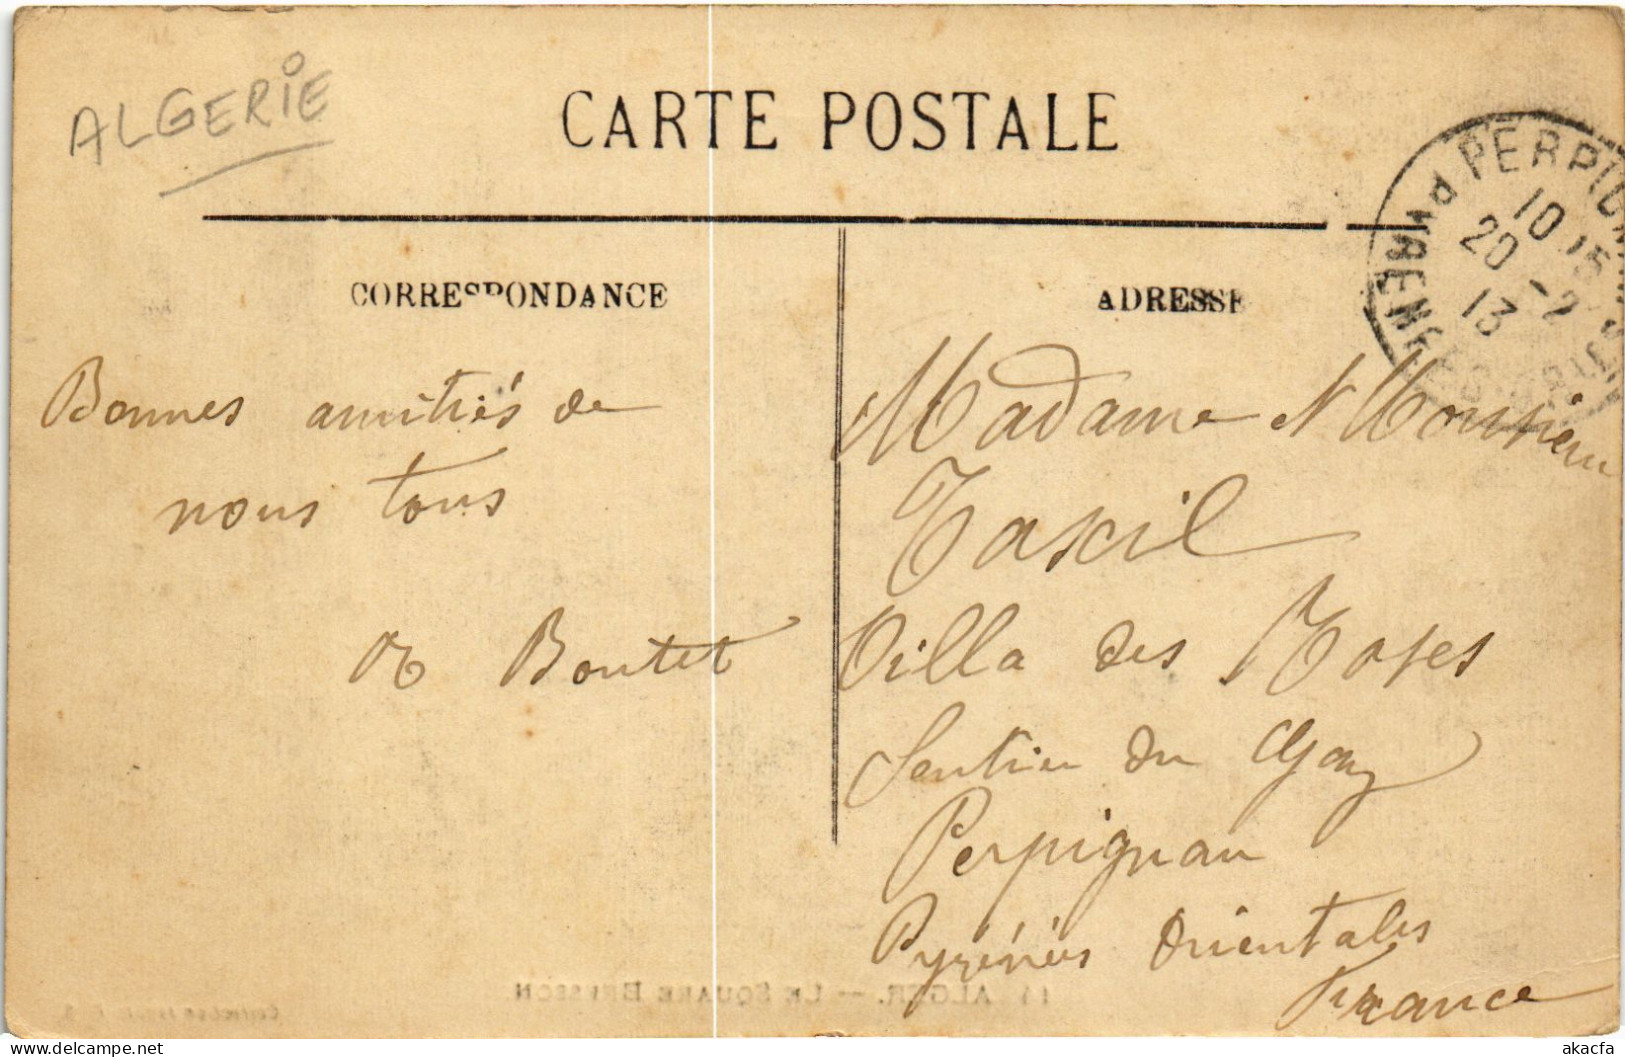 ALGERIE
CARTE POSTALE
CORRESPONDANCE
ADRESSE
PERPIGNAN
10 15
20 -2
13
PYRENEES ORIENTALES
Bonnes amitiés de
nous tous
Boutet
Madame & Monsieur
Taxil
Villa des Roses
Sentier du
Perpignan
Pyrénées Orientales
France
11 ALGER. — LE SQUARE BRESSON
akacfa